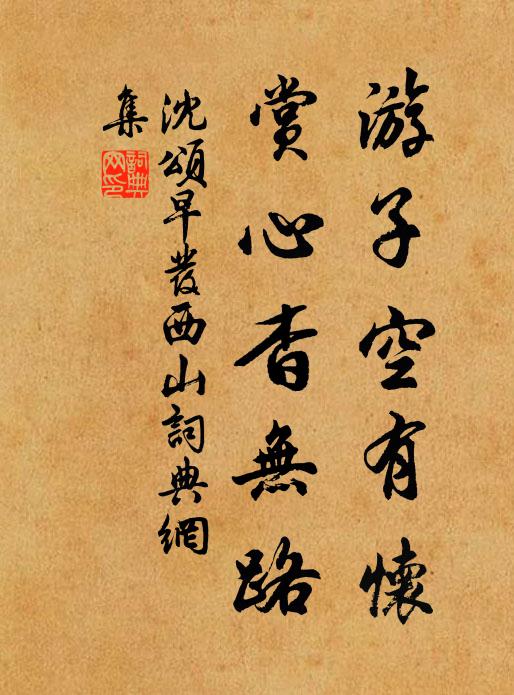 游子空有懷
賞心杳無路
沈頌早發西山詞典網
集
詞典
网印